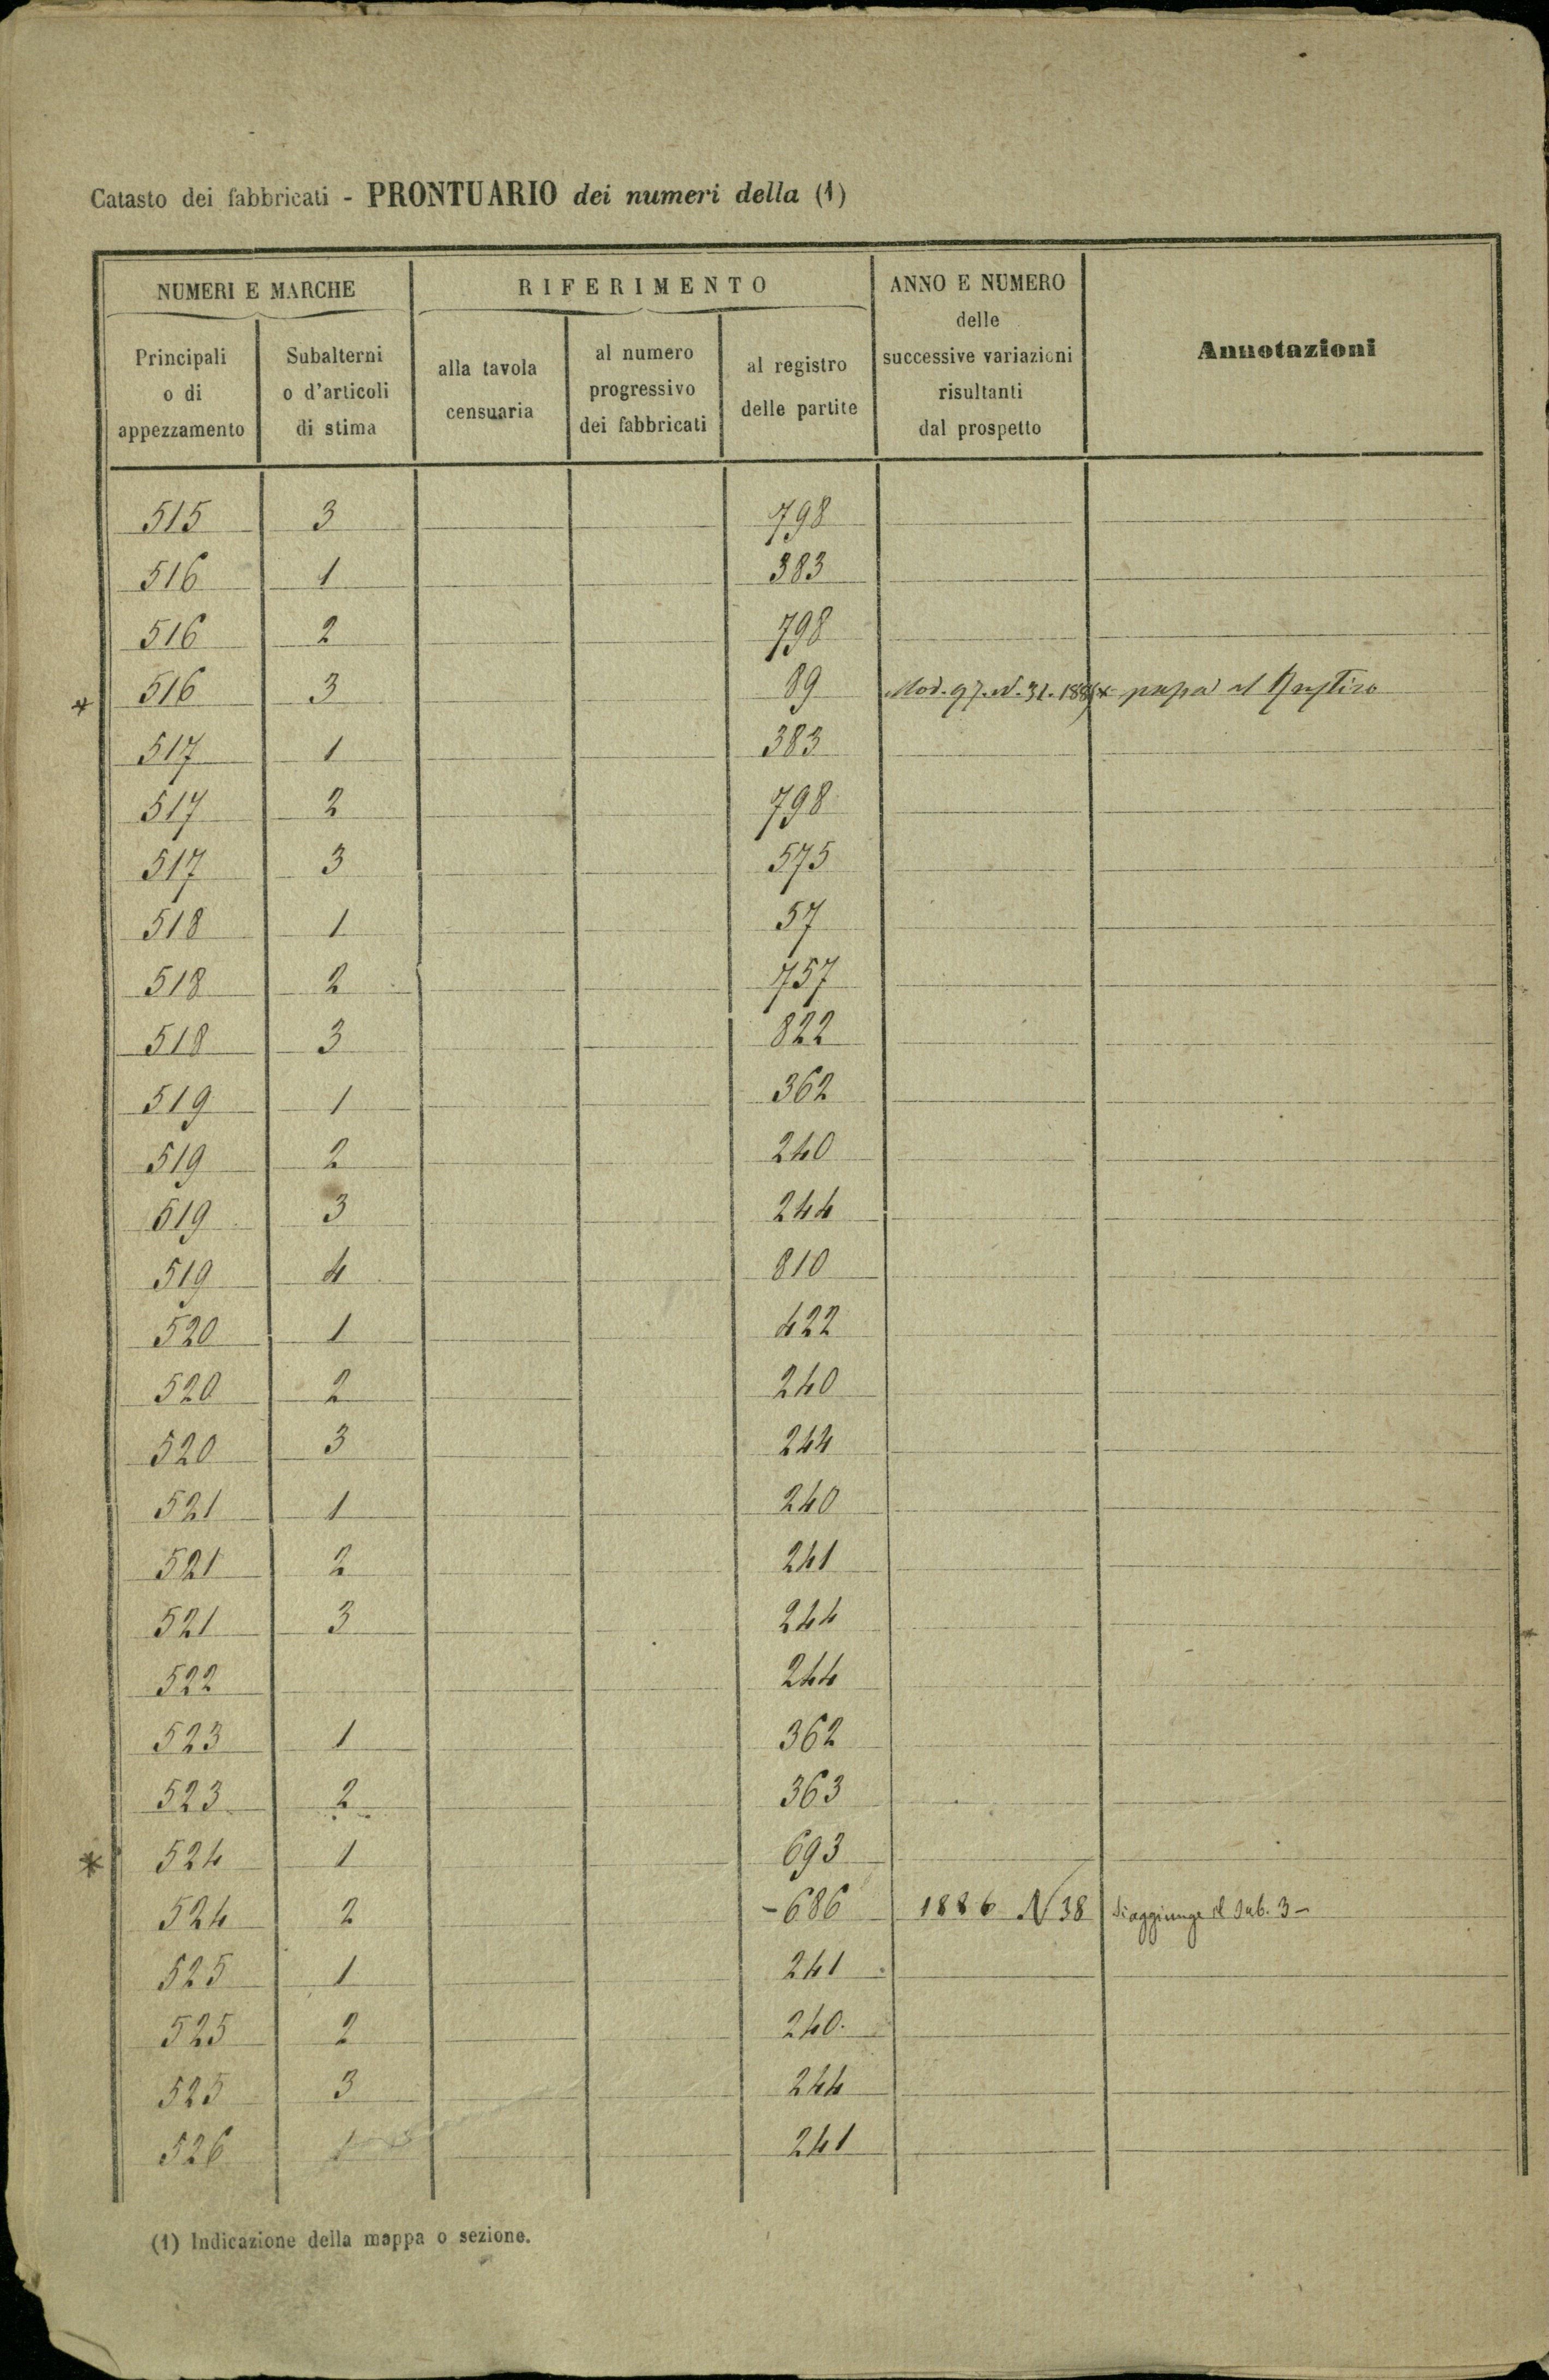 Catasto dei fabbricati - PRONTUARIO dei numeri della (1)
NUMERI E MARCHE
RIFERIMENTO
ANNO E NUMERO
delle
successive variazioni
risultanti
dal prospetto
Annotazioni
Principali
o di
appezzamento
Subalterni
o d'articoli
di stima
alla tavola
censuaria
al numero
progressivo
dei fabbricati
al registro
delle partite
515 3 798
516 1 383
516 2 798
* 516 3 89 Mod. 97. N. 31. passa al Rustico
517 1 383
517 2 798
517 3 575
518 1 57
518 2 757
518 3 822
519 1 362
519 2 240
519 3 244
519 4 810
520 1 422
520 2 240
520 3 244
521 1 240
521 2 241
521 3 244
522 244
523 1 362
523 2 363
* 524 1 693
524 2 -686 1886 N 38 Si aggiunge il Sub. 3 -
525 1 241
525 2 240.
525 3 244
526 1 241
(1) Indicazione della mappa o sezione.